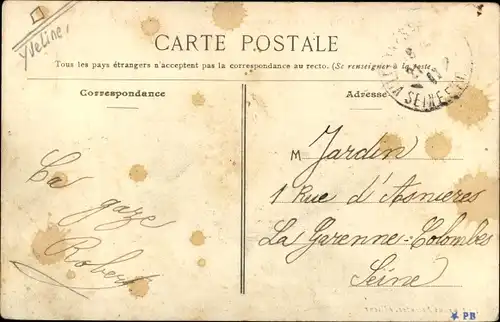 Yvelines
CARTE POSTALE
Tous les pays étrangers n'acceptent pas la correspondance au recto. (Se renseigner à la poste
Correspondance
Adresse
SEINE
M Jardin
1 Rue d'Asnieres
La Garenne=Colombes
Seine
La
gaze
Robert
PB